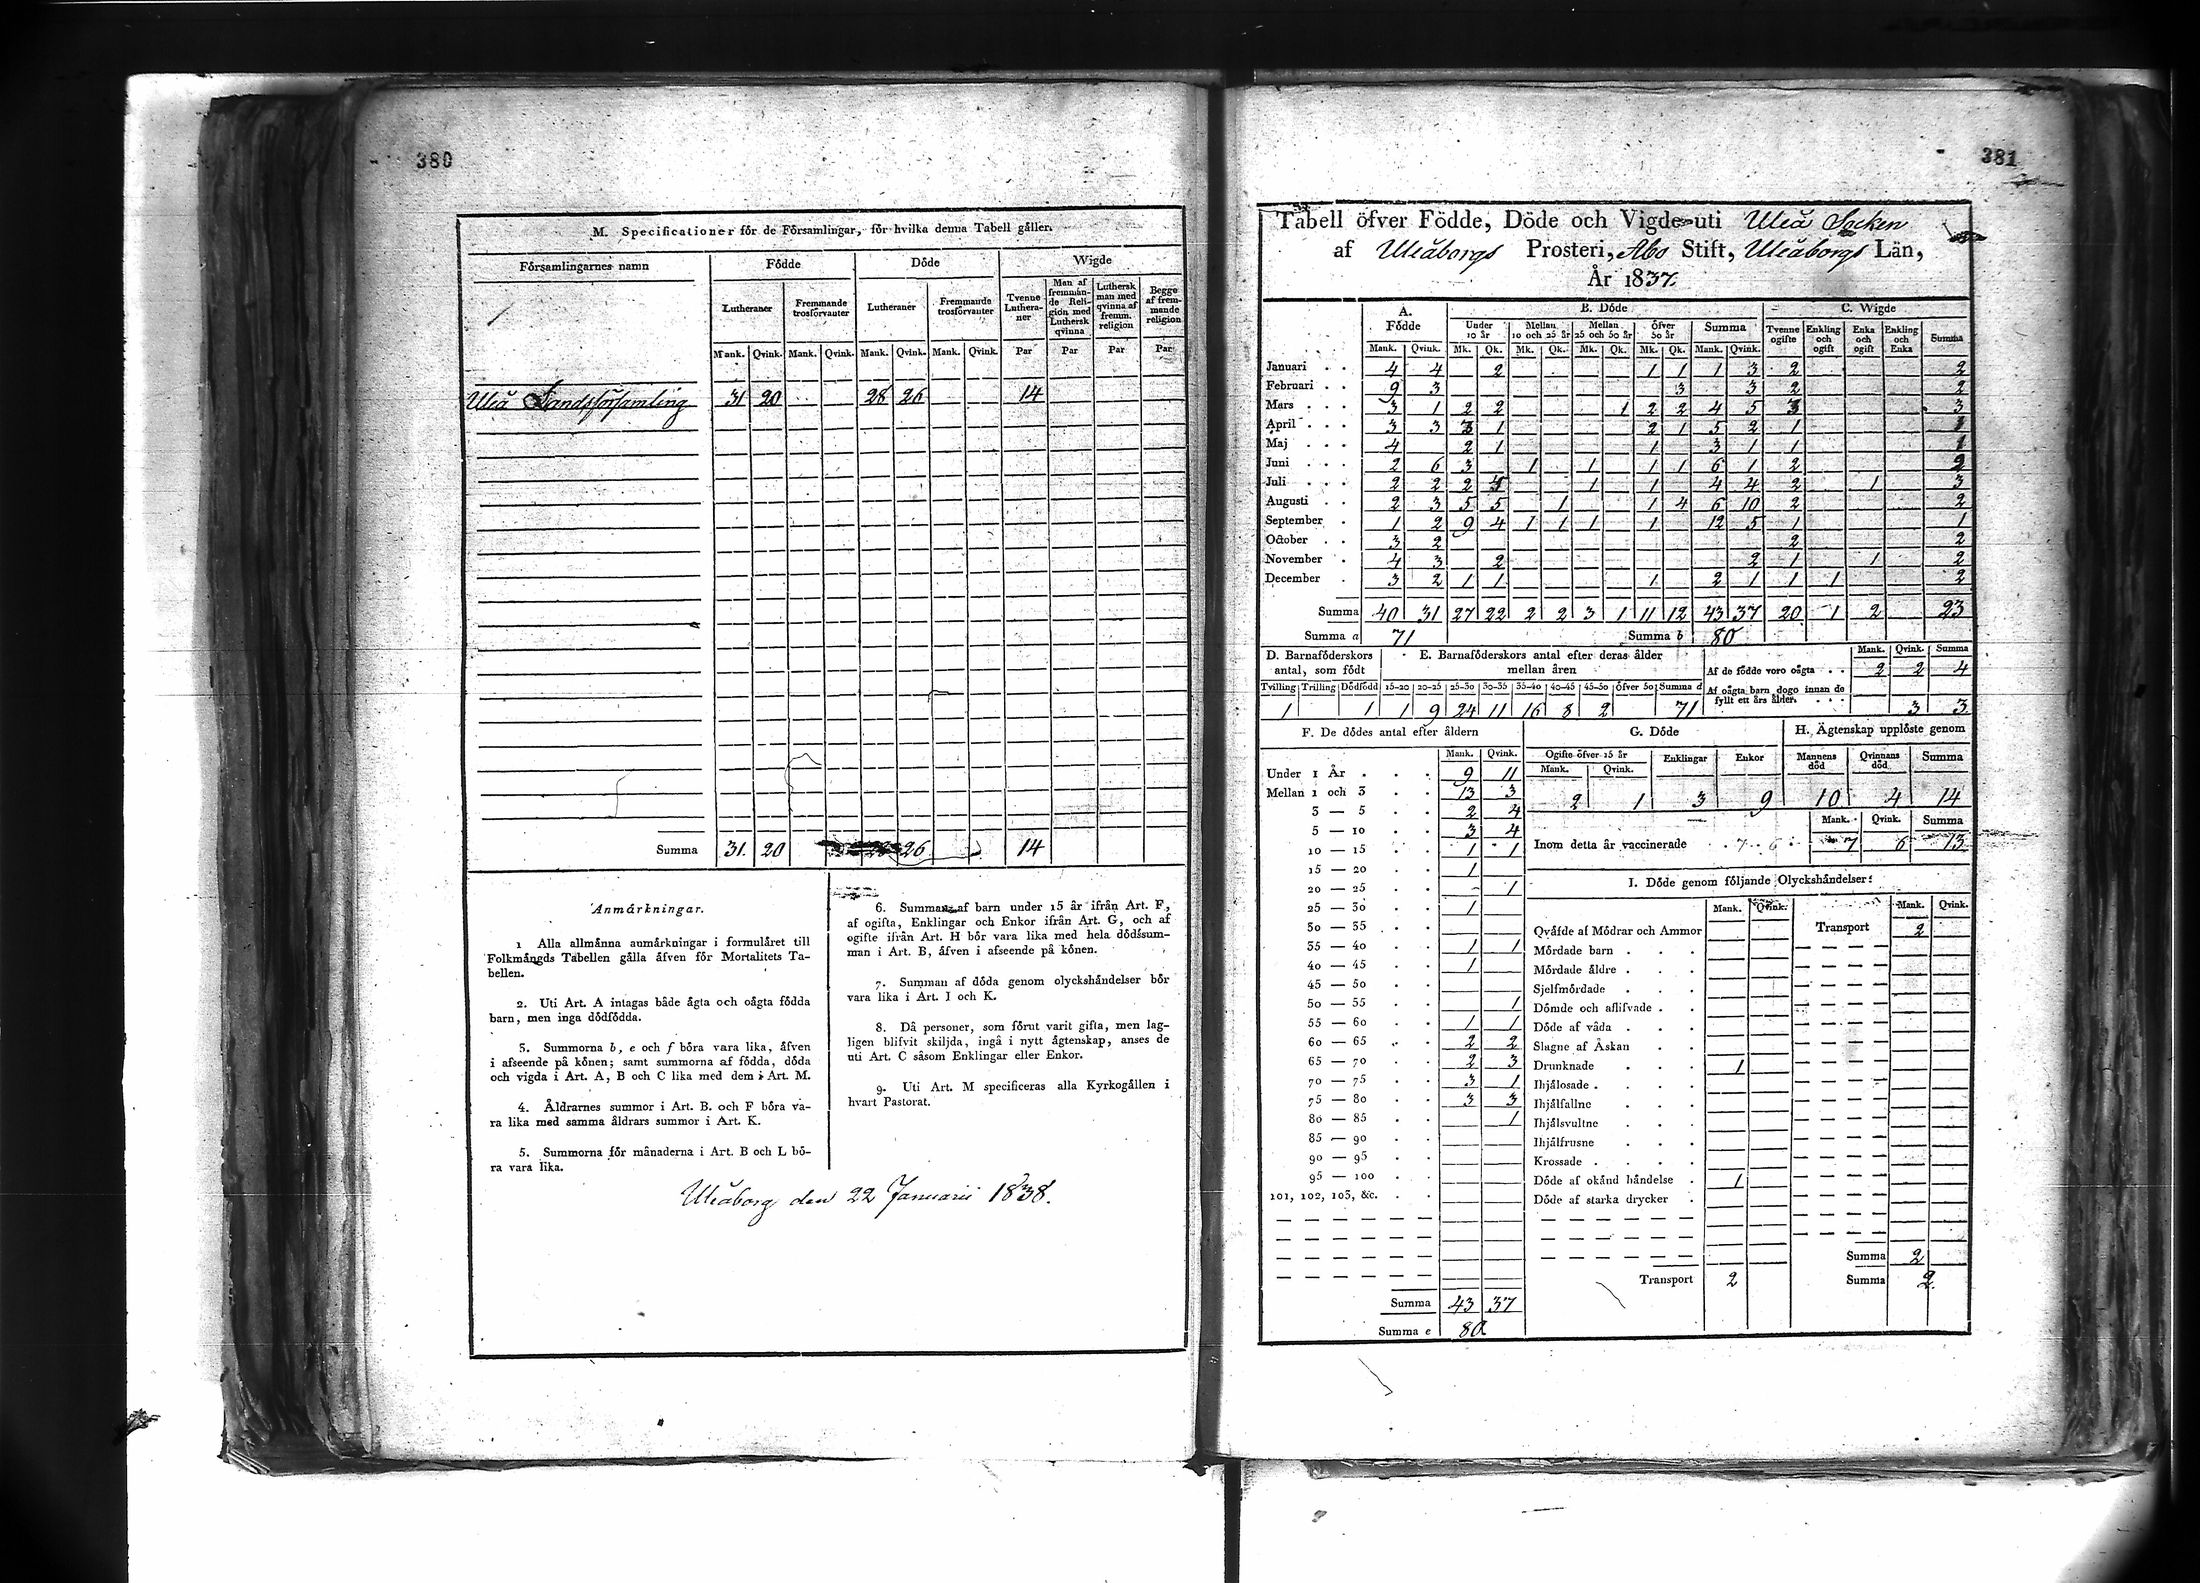 380
M. Specificationer för de Församlingar, för hvilka denna Tabell gäller.
Församlingarnes namn | Födde | Döde | Wigde
Lutheraner | Fremmande trosförvanter | Lutheraner | Fremmande trosförvanter | Tvenne Lutheraner | Man af fremmande Religion med Luthersk qvinna | Luthersk man med qvinna af fremm. religion | Begge af fremmande religion
Mank. | Qvink. | Mank. | Qvink. | Mank. | Qvink. | Mank. | Qvink. | Par | Par | Par | Par
Uleå Landsförsamling | 31 | 20 | 28 | 26 | 14
Summa | 31 | 20 | 28 | 26 | 14
Anmärkningar.
1 Alla allmänna anmärkningar i formuläret till
Folkmängds Tabellen gälla äfven för Mortalitets Ta-
bellen.
2. Uti Art. A intagas både ägta och oägta födda
barn, men inga dödfödda.
3. Summorna b, e och f böra vara lika, äfven
i afseende på könen; samt summorna af födda, döda
och vigda i Art. A, B och C lika med dem i Art. M.
4. Åldrarnes summor i Art. B. och F böra va-
ra lika med samma åldrars summor i Art. K.
5. Summorna för månaderna i Art. B och L bö-
ra vara lika.
6. Summan af barn under 15 år ifrån Art. F,
af ogifta, Enklingar och Enkor ifrån Art. G, och af
ogifte ifrån Art. H bör vara lika med hela dödssum-
man i Art. B, äfven i afseende på könen.
7. Summan af döda genom olyckshändelser bör
vara lika i Art. I och K.
8. Då personer, som förut varit gifta, men lag-
ligen blifvit skiljda, ingå i nytt ägtenskap, anses de
uti Art. C såsom Enklingar eller Enkor.
9. Uti Art. M specificeras alla Kyrkogällen i
hvart Pastorat.
Uleåborg den 22 Januarii 1838.
381
Tabell öfver Födde, Döde och Vigde uti Uleå Socken
af Uleåborgs Prosteri, Abo Stift, Uleåborgs Län,
År 1837.
A. Födde | B. Döde | C. Wigde
Under 10 år | Mellan 10 och 25 år | Mellan 25 och 50 år | Öfver 50 år | Summa | Tvenne ogifte | Enkling och ogift | Enka och ogift | Enkling och Enka | Summa
Mank. | Qvink. | Mk. | Qk. | Mk. | Qk. | Mk. | Qk. | Mk. | Qk. | Mank. | Qvink.
Januari | 4 | 4 | 2 | 1 | 1 | 1 | 3 | 2 | 2
Februari | 9 | 3 | 3 | 3 | 2 | 2
Mars | 3 | 1 | 2 | 2 | 1 | 2 | 2 | 4 | 5 | 3 | 3
April | 3 | 3 | 3 | 1 | 2 | 1 | 5 | 2 | 1 | 1
Maj | 4 | 2 | 1 | 1 | 3 | 1 | 1 | 1
Juni | 2 | 6 | 3 | 1 | 1 | 1 | 1 | 6 | 1 | 2 | 2
Juli | 2 | 2 | 2 | 4 | 1 | 1 | 4 | 4 | 2 | 1 | 3
Augusti | 2 | 3 | 5 | 5 | 1 | 1 | 4 | 6 | 10 | 2 | 2
September | 1 | 2 | 9 | 4 | 1 | 1 | 1 | 1 | 12 | 5 | 1 | 1
October | 3 | 2 | 2 | 2
November | 4 | 3 | 2 | 2 | 1 | 1 | 2
December | 3 | 2 | 1 | 1 | 1 | 2 | 1 | 1 | 1 | 2
Summa | 40 | 31 | 27 | 22 | 2 | 2 | 3 | 1 | 11 | 12 | 43 | 37 | 20 | 1 | 2 | 23
Summa a | 71 | Summa b | 80
D. Barnaföderskors antal, som födt | E. Barnaföderskors antal efter deras ålder mellan åren | Mank. | Qvink. | Summa
Af de födde voro oägta | 2 | 2 | 4
Af oägta barn dogo innan de fyllt ett års ålder | 3 | 3
Tvilling | Trilling | Dödfödd | 15-20 | 20-25 | 25-30 | 30-35 | 35-40 | 40-45 | 45-50 | Öfver 50 | Summa d
1 | 1 | 1 | 9 | 24 | 11 | 16 | 8 | 2 | 71
F. De dödes antal efter åldern
Mank. | Qvink.
Under 1 År | 9 | 11
Mellan 1 och 3 | 13 | 3
3 — 5 | 2 | 4
5 — 10 | 3 | 4
10 — 15 | 1 | 1
15 — 20 | 1
20 — 25 | 1
25 — 30 | 1
30 — 35
35 — 40 | 1 | 1
40 — 45 | 1
45 — 50
50 — 55 | 1
55 — 60 | 1 | 1
60 — 65 | 2 | 2
65 — 70 | 2 | 3
70 — 75 | 3 | 1
75 — 80 | 3 | 3
80 — 85 | 1
85 — 90
90 — 95
95 — 100
101, 102, 103, &c.
Summa | 43 | 37
Summa e | 80
G. Döde | H. Ägtenskap upplöste genom
Ogifte öfver 15 år | Enklingar | Enkor | Mannens död | Qvinnans död | Summa
Mank. | Qvink.
2 | 1 | 3 | 9 | 10 | 4 | 14
Mank. | Qvink. | Summa
Inom detta år vaccinerade | 7 | 6 | 13
I. Döde genom följande Olyckshändelser:
Mank. | Qvink. | Mank. | Qvink.
Qväfde af Mödrar och Ammor | Transport | 2
Mördade barn
Mördade äldre
Sjelfmördade
Dömde och aflifvade
Döde af våda
Slagne af Åskan
Drunknade | 1
Ihjälosade
Ihjälfallne
Ihjälsvultne
Ihjälfrusne
Krossade
Döde af okänd händelse | 1
Döde af starka drycker
Summa | 2
Transport | 2 | Summa | 2